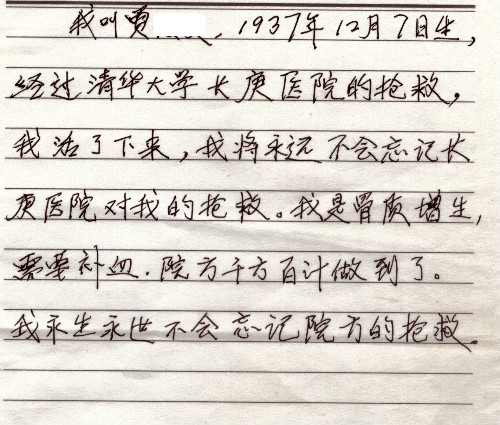 我叫贾 ，1937年12月7日生，
经过清华大学长庚医院的抢救，
我活了下来，我将永远不会忘记长
庚医院对我的抢救。我是骨质增生，
需要补血．院方千方百计做到了。
我永生永世不会忘记院方的抢救．